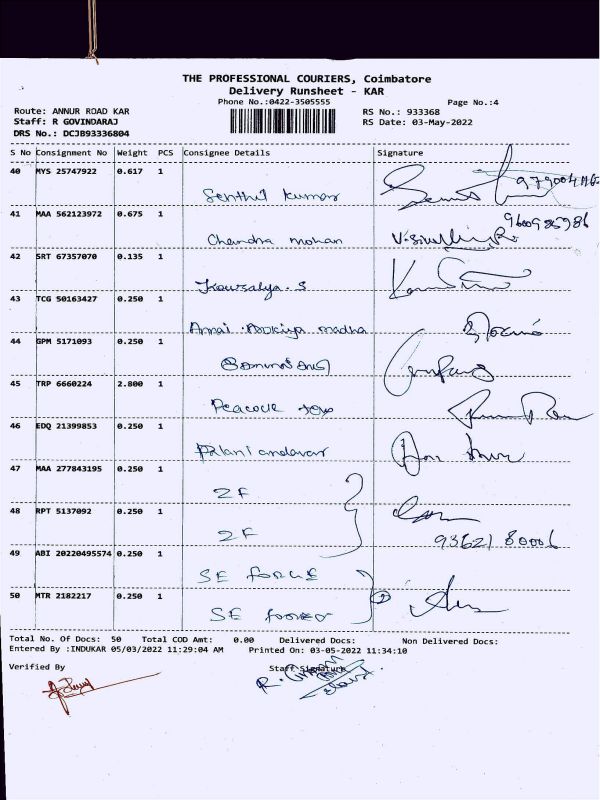 THE PROFESSIONAL COURIERS, Coimbatore
Delivery Runsheet - KAR
Phone No.:0422-3505555
Page No.:4
Route: ANNUR ROAD KAR
RS No.: 933368
Staff: R GOVINDARAJ
RS Date: 03-May-2022
DRS No.: DCJB93336804
S No Consignment No Weight PCS Consignee Details Signature
40 MYS 25747922 0.617 1
Senthil Kumar
41 MAA 562123972 0.675 1
Chandra mohan
42 SRT 67357070 0.135 1
Kowsalya. S
43 TCG 50163427 0.250 1
madha
44 GPM 5171093 0.250 1
45 TRP 6660224 2.800 1
Peacock
46 EDQ 21399853 0.250 1
Palani andavar
47 MAA 277843195 0.250 1
ZF
48 RPT 5137092 0.250 1
ZF
49 ABI 20220495574 0.250 1
SE FORGE
50 MTR 2182217 0.250 1
SE
Total No. Of Docs: 50 Total COD Amt: 0.00 Delivered Docs: Non Delivered Docs:
Entered By :INDUKAR 05/03/2022 11:29:04 AM Printed On: 03-05-2022 11:34:10
Verified By
Staff Signature